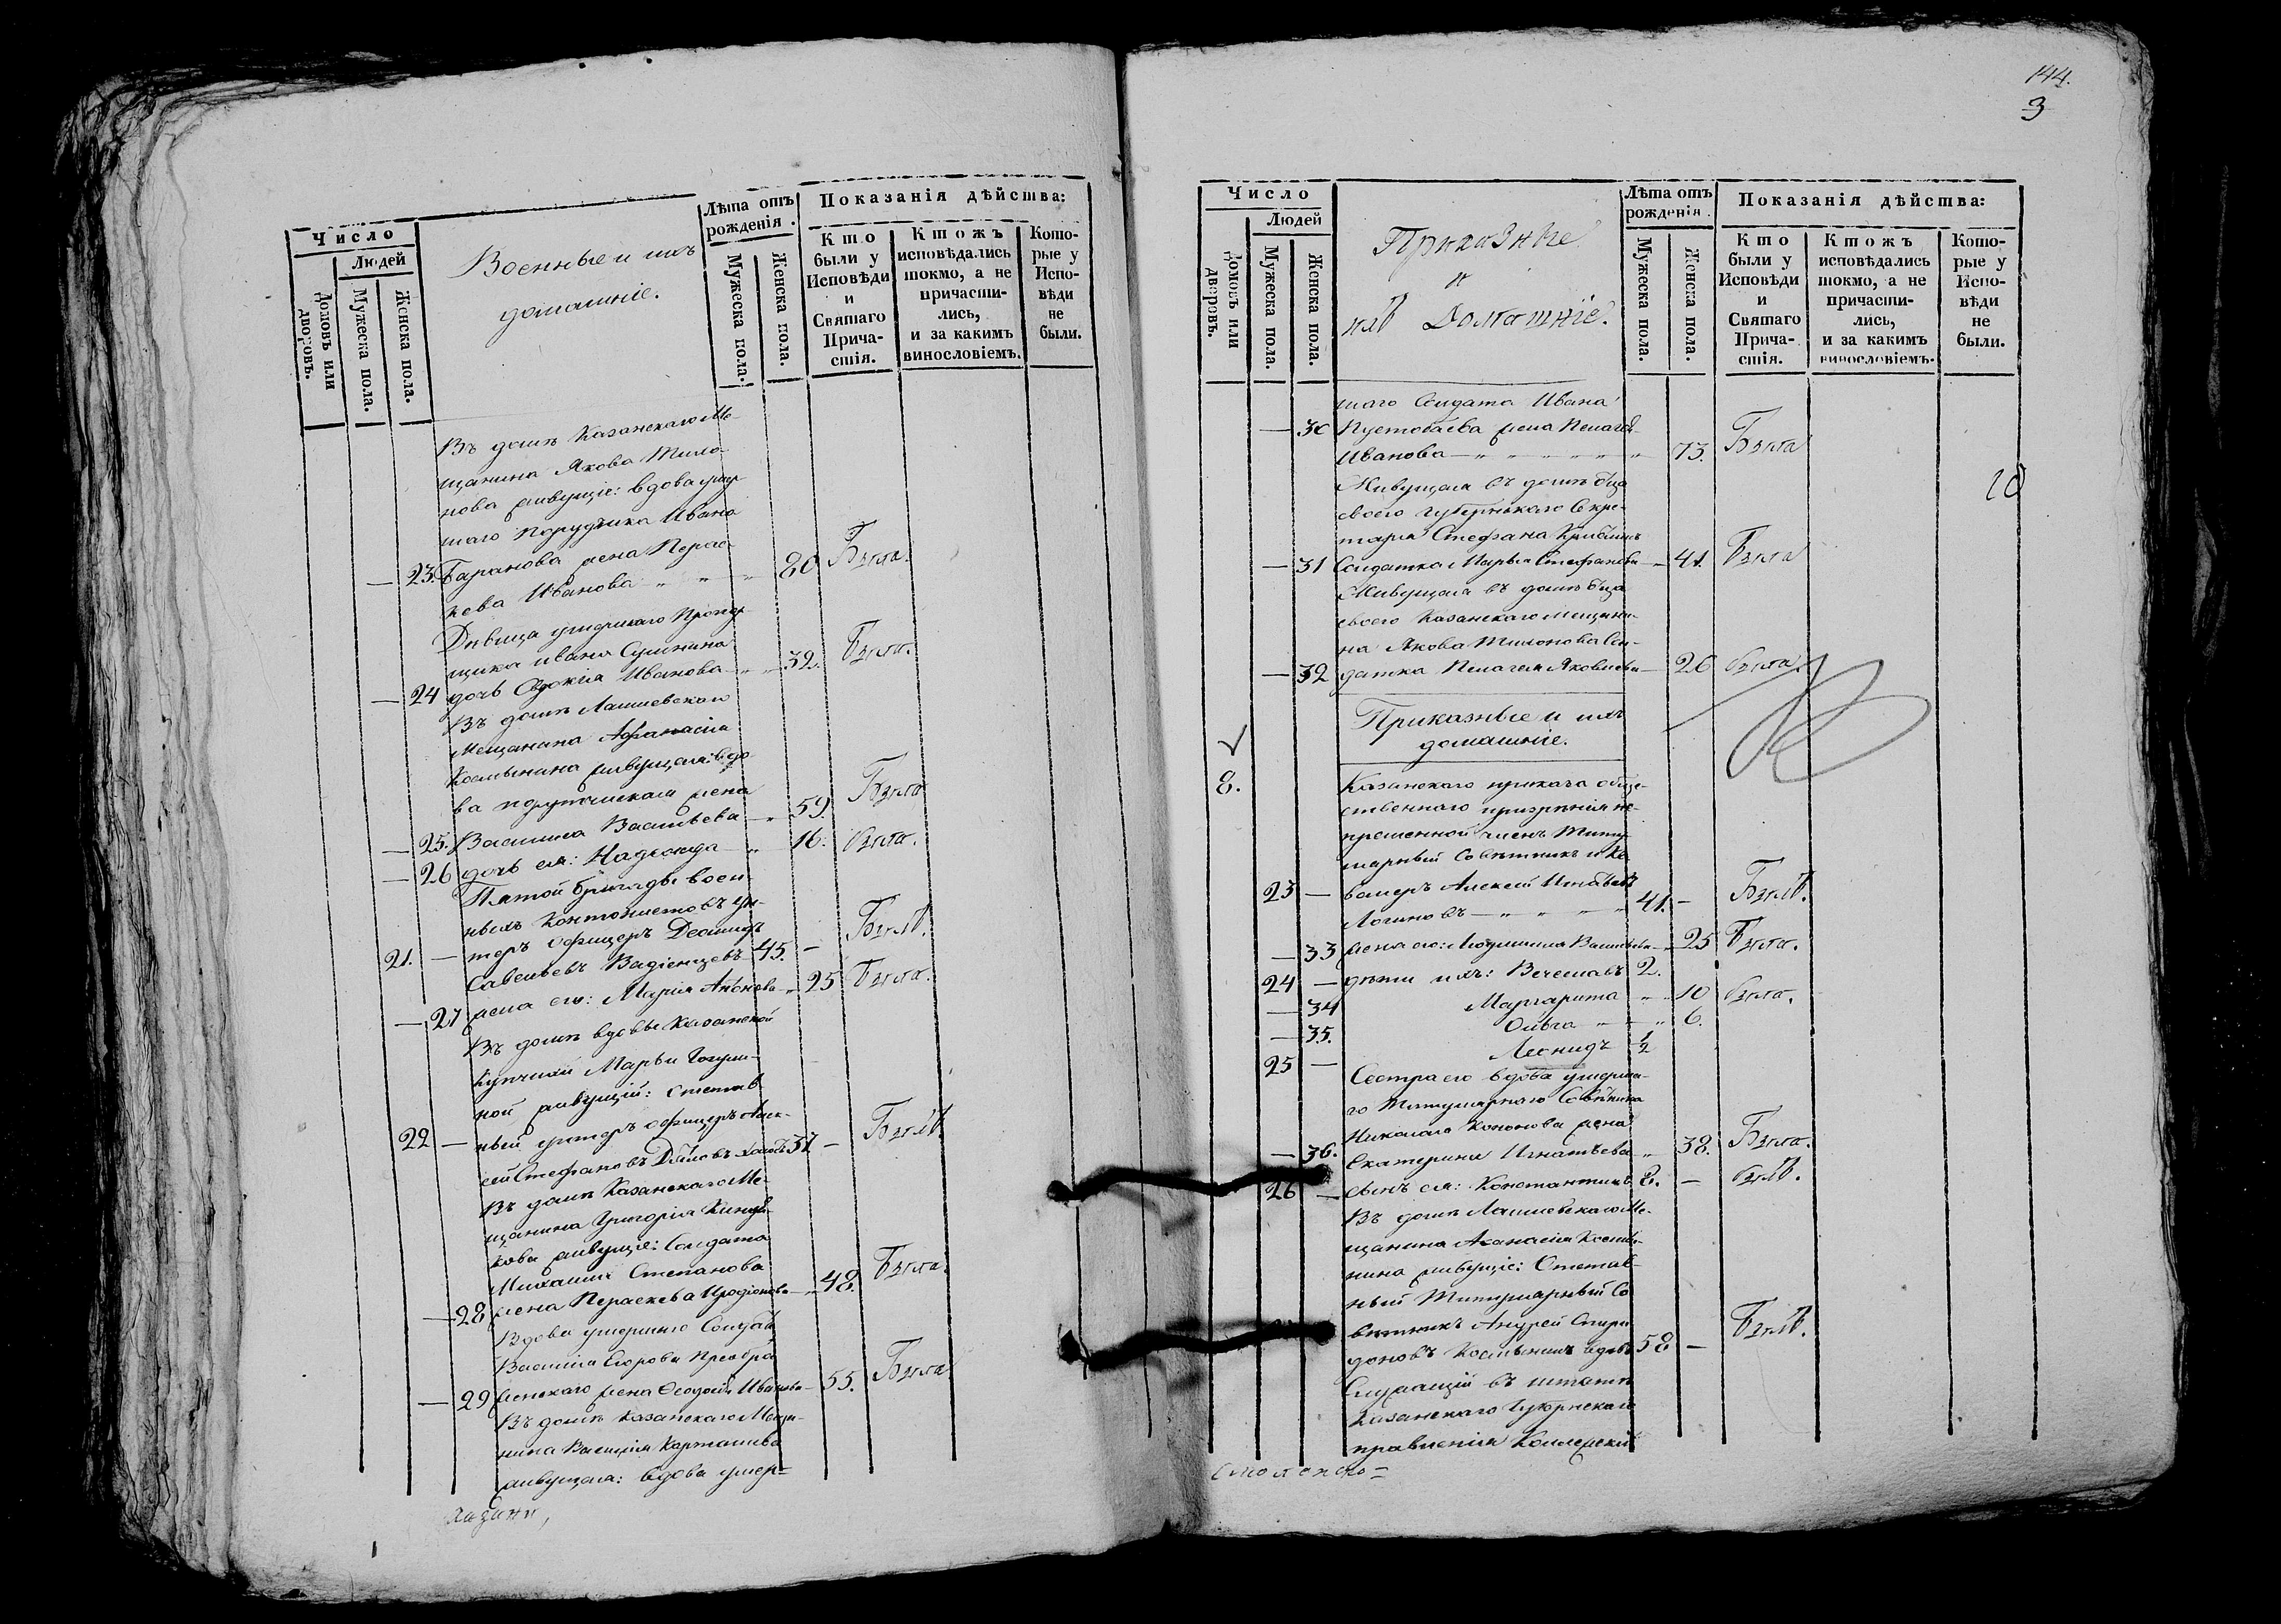 Число
Людей
Домовъ или дворовъ.
Мужеска пола.
Женска пола.
Военные и ихъ
домашніе.
Лѣта отъ
рожденія.
Мужеска пола.
Женска пола.
Показанія дѣйства:
Кто были у Исповѣди и Святаго Причастія.
Ктожъ исповѣдались токмо, а не причастились, и за какимъ винословіемъ.
Которые у Исповѣди не были.
Въ домѣ Казанскаго Ме-
щанина Якова Тихо-
нова живущіе: вдова умер-
шаго Порудчика Ивана
— 23. Баранова жена Парас-
кева Иванова 80 Была.
Дѣвица умершаго Прапор-
щика Ивана
— 24 дочь Евдокія Иванова 32. Была.
Въ домѣ Лаишевскаго
Мещанина Афанасія
живущая: вдо-
ва жена
— 25. Васильева 59. Была
— 26 дочь ея: Надежда 16. была.
Пятой бригады воен-
ныхъ Кантонистовъ ун-
21. — теръ офицеръ Леонидъ
Савельевъ 45. — Былъ.
— 27 жена его: Марія 25 Была.
Въ домѣ вдовы Казанской
Купчихи Марьи
ной живущій: отстав-
22 — ный унтеръ офицеръ Алек-
сей Стефановъ 37 — Былъ.
Въ домѣ Казанскаго Ме-
щанина Григорія
кова живущіе: Солдата
Михаила Степанова
— 28 жена Параскева Иродіонова 48. Была.
Вдова умершаго Солдата
Василія Егорова Преобра-
— 29 женскаго жена Ѳеодосія Иванова 55. Была
Въ домѣ Казанскаго Меща-
нина Василія Карташева
живущая: вдова умер=
144.
3
Число
Людей
Домовъ или дворовъ.
Мужеска пола.
Женска пола.
Приказные
и
ихъ Домашніе.
Лѣта отъ
рожденія.
Мужеска пола.
Женска пола.
Показанія дѣйства:
Кто были у Исповѣди и Святаго Причастія.
Ктожъ исповѣдались токмо, а не причастились, и за какимъ винословіемъ.
Которые у Исповѣди не были.
шаго Солдата Ивана
— 30 Пустобаева жена Пелагея
Иванова 73. Была
Живущая въ домѣ отца
своего Губернскаго Секре-
таря Стефана
— 31 Солдатка Марья Стефанова 41. Была
Живущая въ домѣ отца
своего Казанскаго мещани-
на Якова Тихонова Сол-
— 32 датка Пелагея Яковлева 26 была.
Приказные и ихъ
домашніе.
8. Казанскаго приказа обще-
ственнаго призрѣнія не-
премѣнной членъ Титу-
лярный Совѣтникъ и Ка-
23 — валеръ Алексей
Логиновъ 41. — Былъ.
— 33 жена его: Людмилла Васильева 25 Была.
24 — дѣти ихъ: Вечеславъ 2.
— 34 Маргарита 10 была.
— 35. Ольга 6.
25 — Леонидъ 1/2
Сестра его вдова умерша-
го Титулярнаго Совѣтника
Николая Кононова жена
— 36. Екатерина Игнатьева 38. Была.
26 — сынъ ея: Константинъ 8. — былъ.
Въ домѣ Лаишевскаго Ме-
щанина
нина живущіе: Отстав-
ный Титулярный Со-
вѣтникъ Андрей Спири-
доновъ вдовъ 58 — Былъ.
Служащій въ штатѣ
Казанскаго Губернскаго
правленія Коллежскій